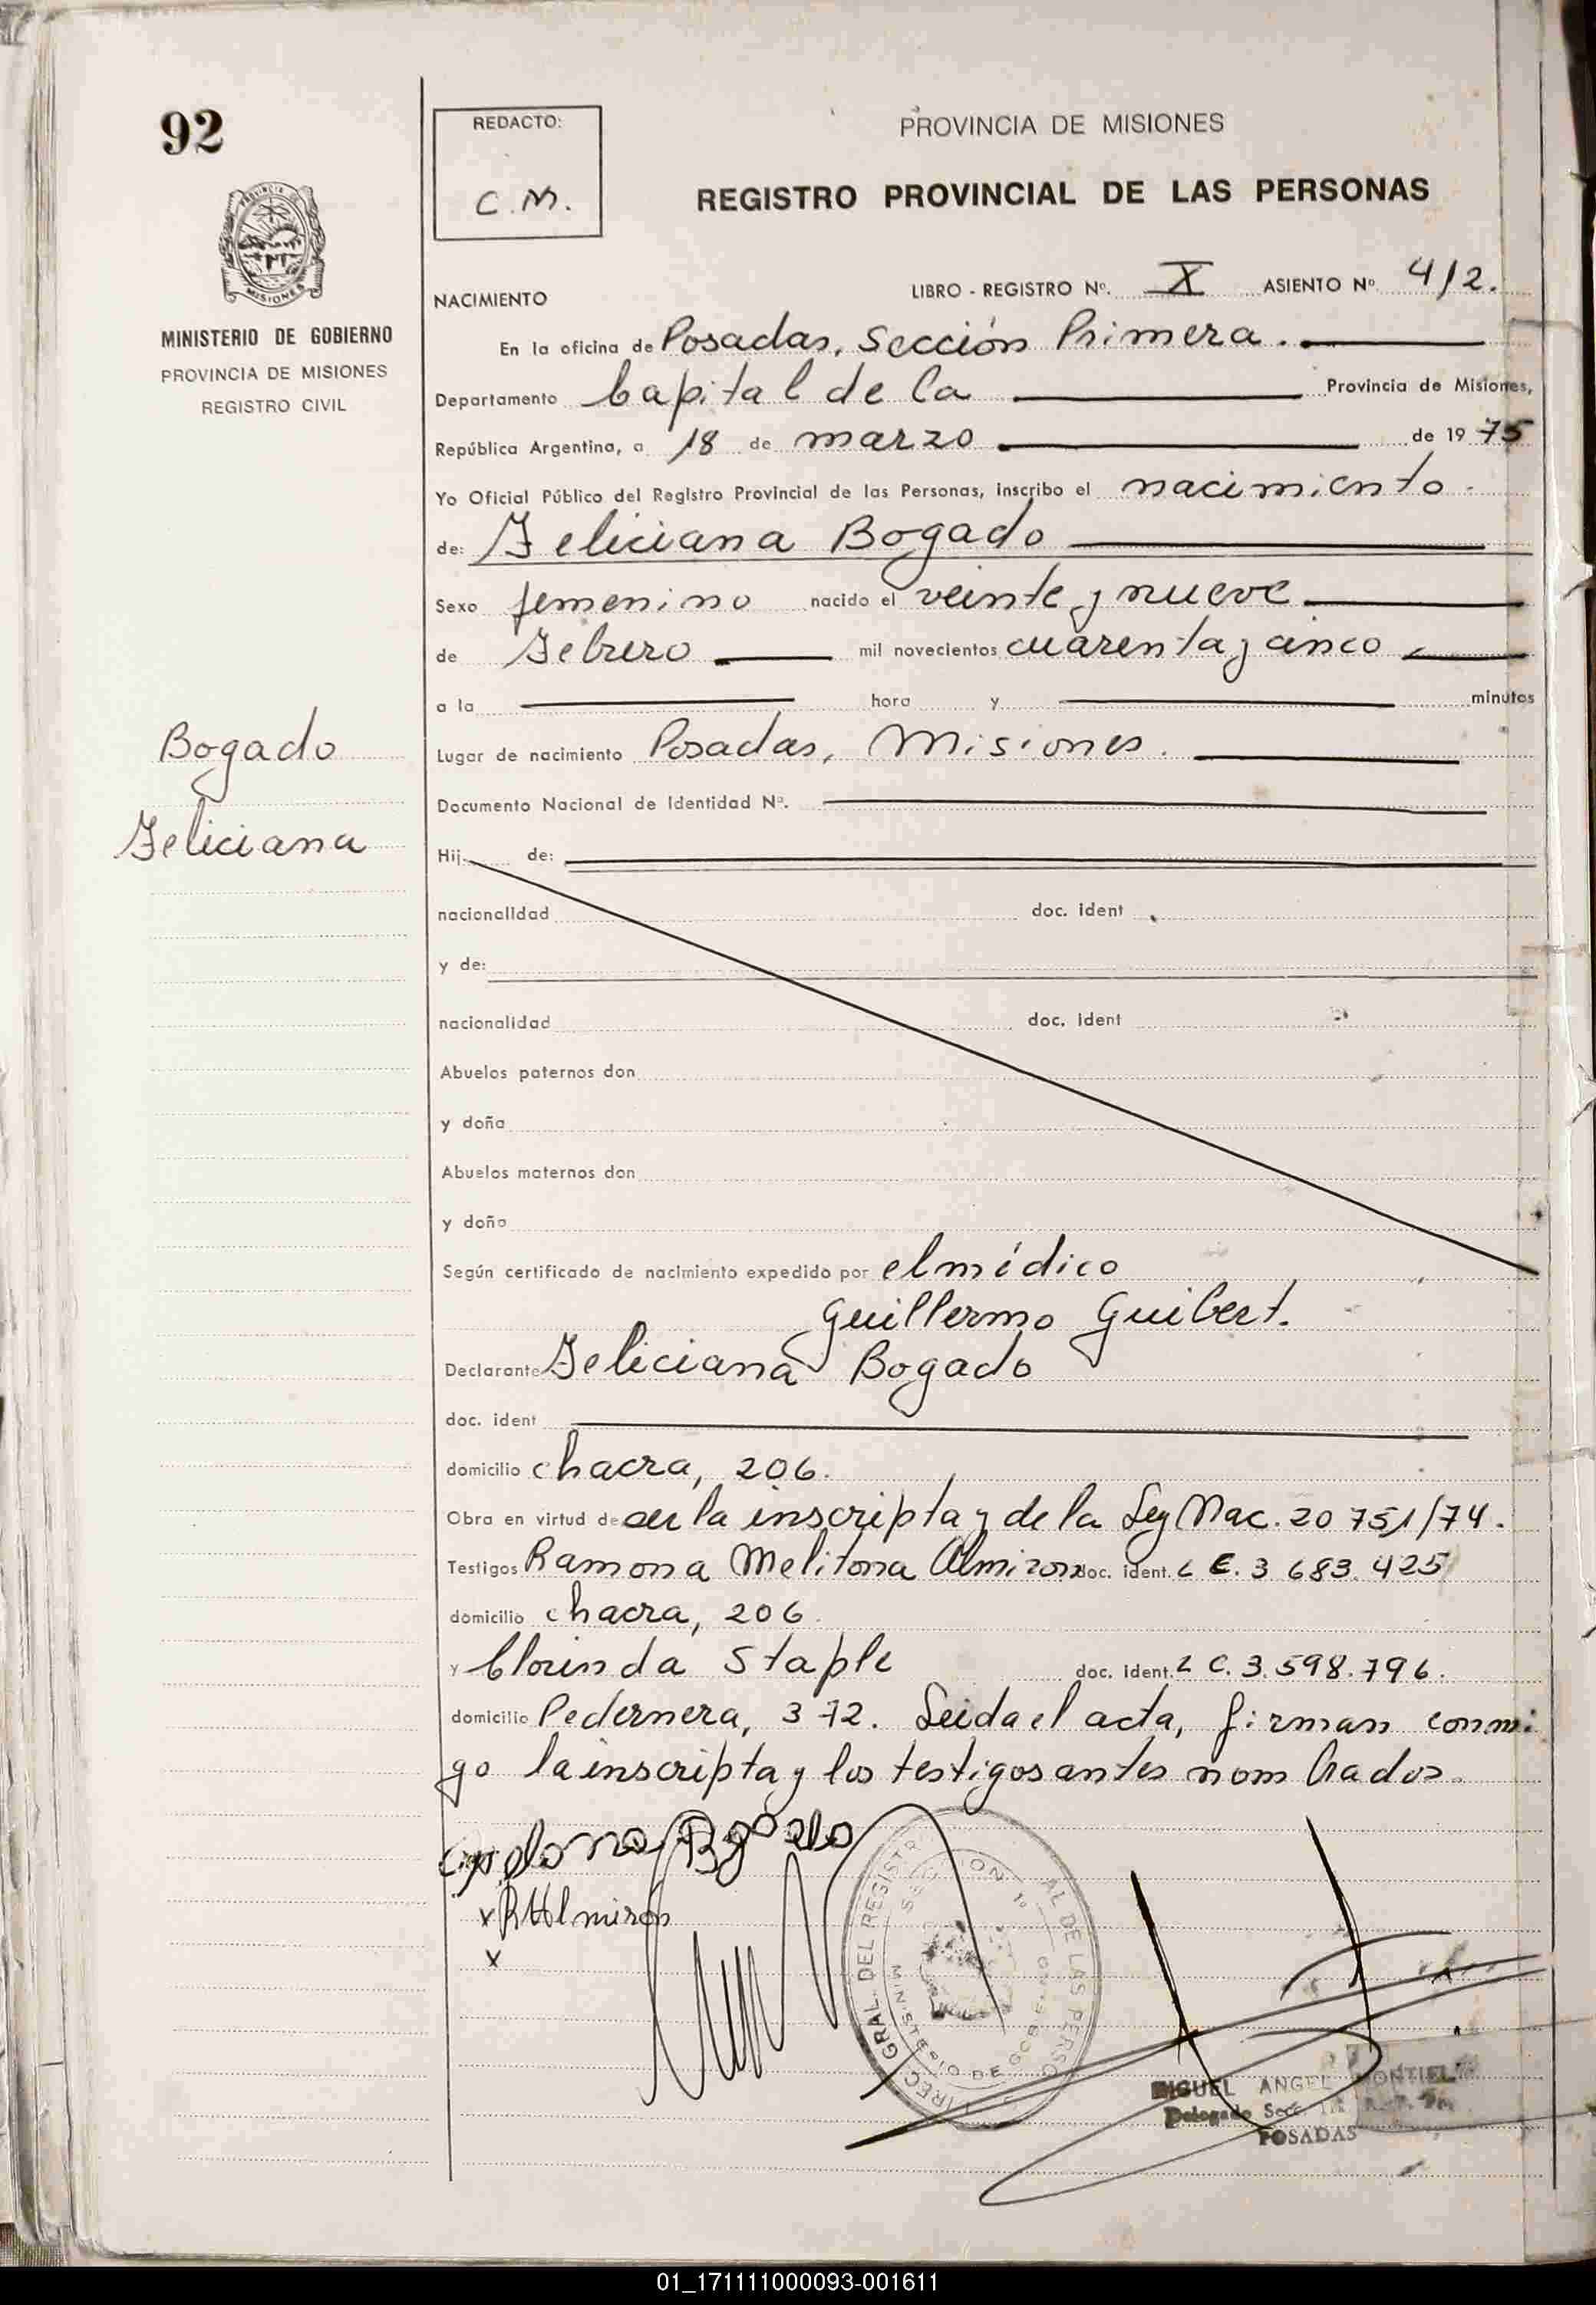 92
REDACTO:
C.M.
PROVINCIA DE MISIONES
REGISTRO PROVINCIAL DE LAS PERSONAS
PROVINCIA
MISIONES
MINISTERIO DE GOBIERNO
PROVINCIA DE MISIONES
REGISTRO CIVIL
NACIMIENTO
LIBRO - REGISTRO Nº. X ASIENTO Nº 412.
En la oficina de Posadas, Sección Primera.
Departamento Capital de la Provincia de Misiones,
República Argentina, a 18 de marzo de 1975
Yo Oficial Público del Registro Provincial de las Personas, inscribo el nacimiento
de: Feliciana Bogado
Sexo femenino nacido el veinte y nueve
de Febrero mil novecientos cuarenta y cinco
a la hora y minutos
Bogado
Feliciana
Lugar de nacimiento Posadas, Misiones.
Documento Nacional de Identidad Nº.
Hij de:
nacionalidad doc. ident
y de:
nacionalidad doc. ident
Abuelos paternos don
y doña
Abuelos maternos don
y doña
Según certificado de nacimiento expedido por el médico
Guillermo Guibert.
Declarante Feliciana Bogado
doc. ident
domicilio chacra, 206.
Obra en virtud de ser la inscripta y de la Ley Nac. 20 751/74.
Testigos Ramona Melitona Almiron doc. ident. L C. 3 683.425
domicilio chacra, 206.
y Clorinda Staple doc. ident. L C. 3.598.796.
domicilio Pedernera, 372. Leida el acta, firman conmi
go la inscripta y los testigos antes nombrados.
x R Almiron
x
GRAL. DEL REGISTR AL DE LAS PERSO
MINISTERIO DE GOBIERNO
MIGUEL ANGEL MONTIEL
Delegado Secc. 1ra
POSADAS
01_171111000093-001611